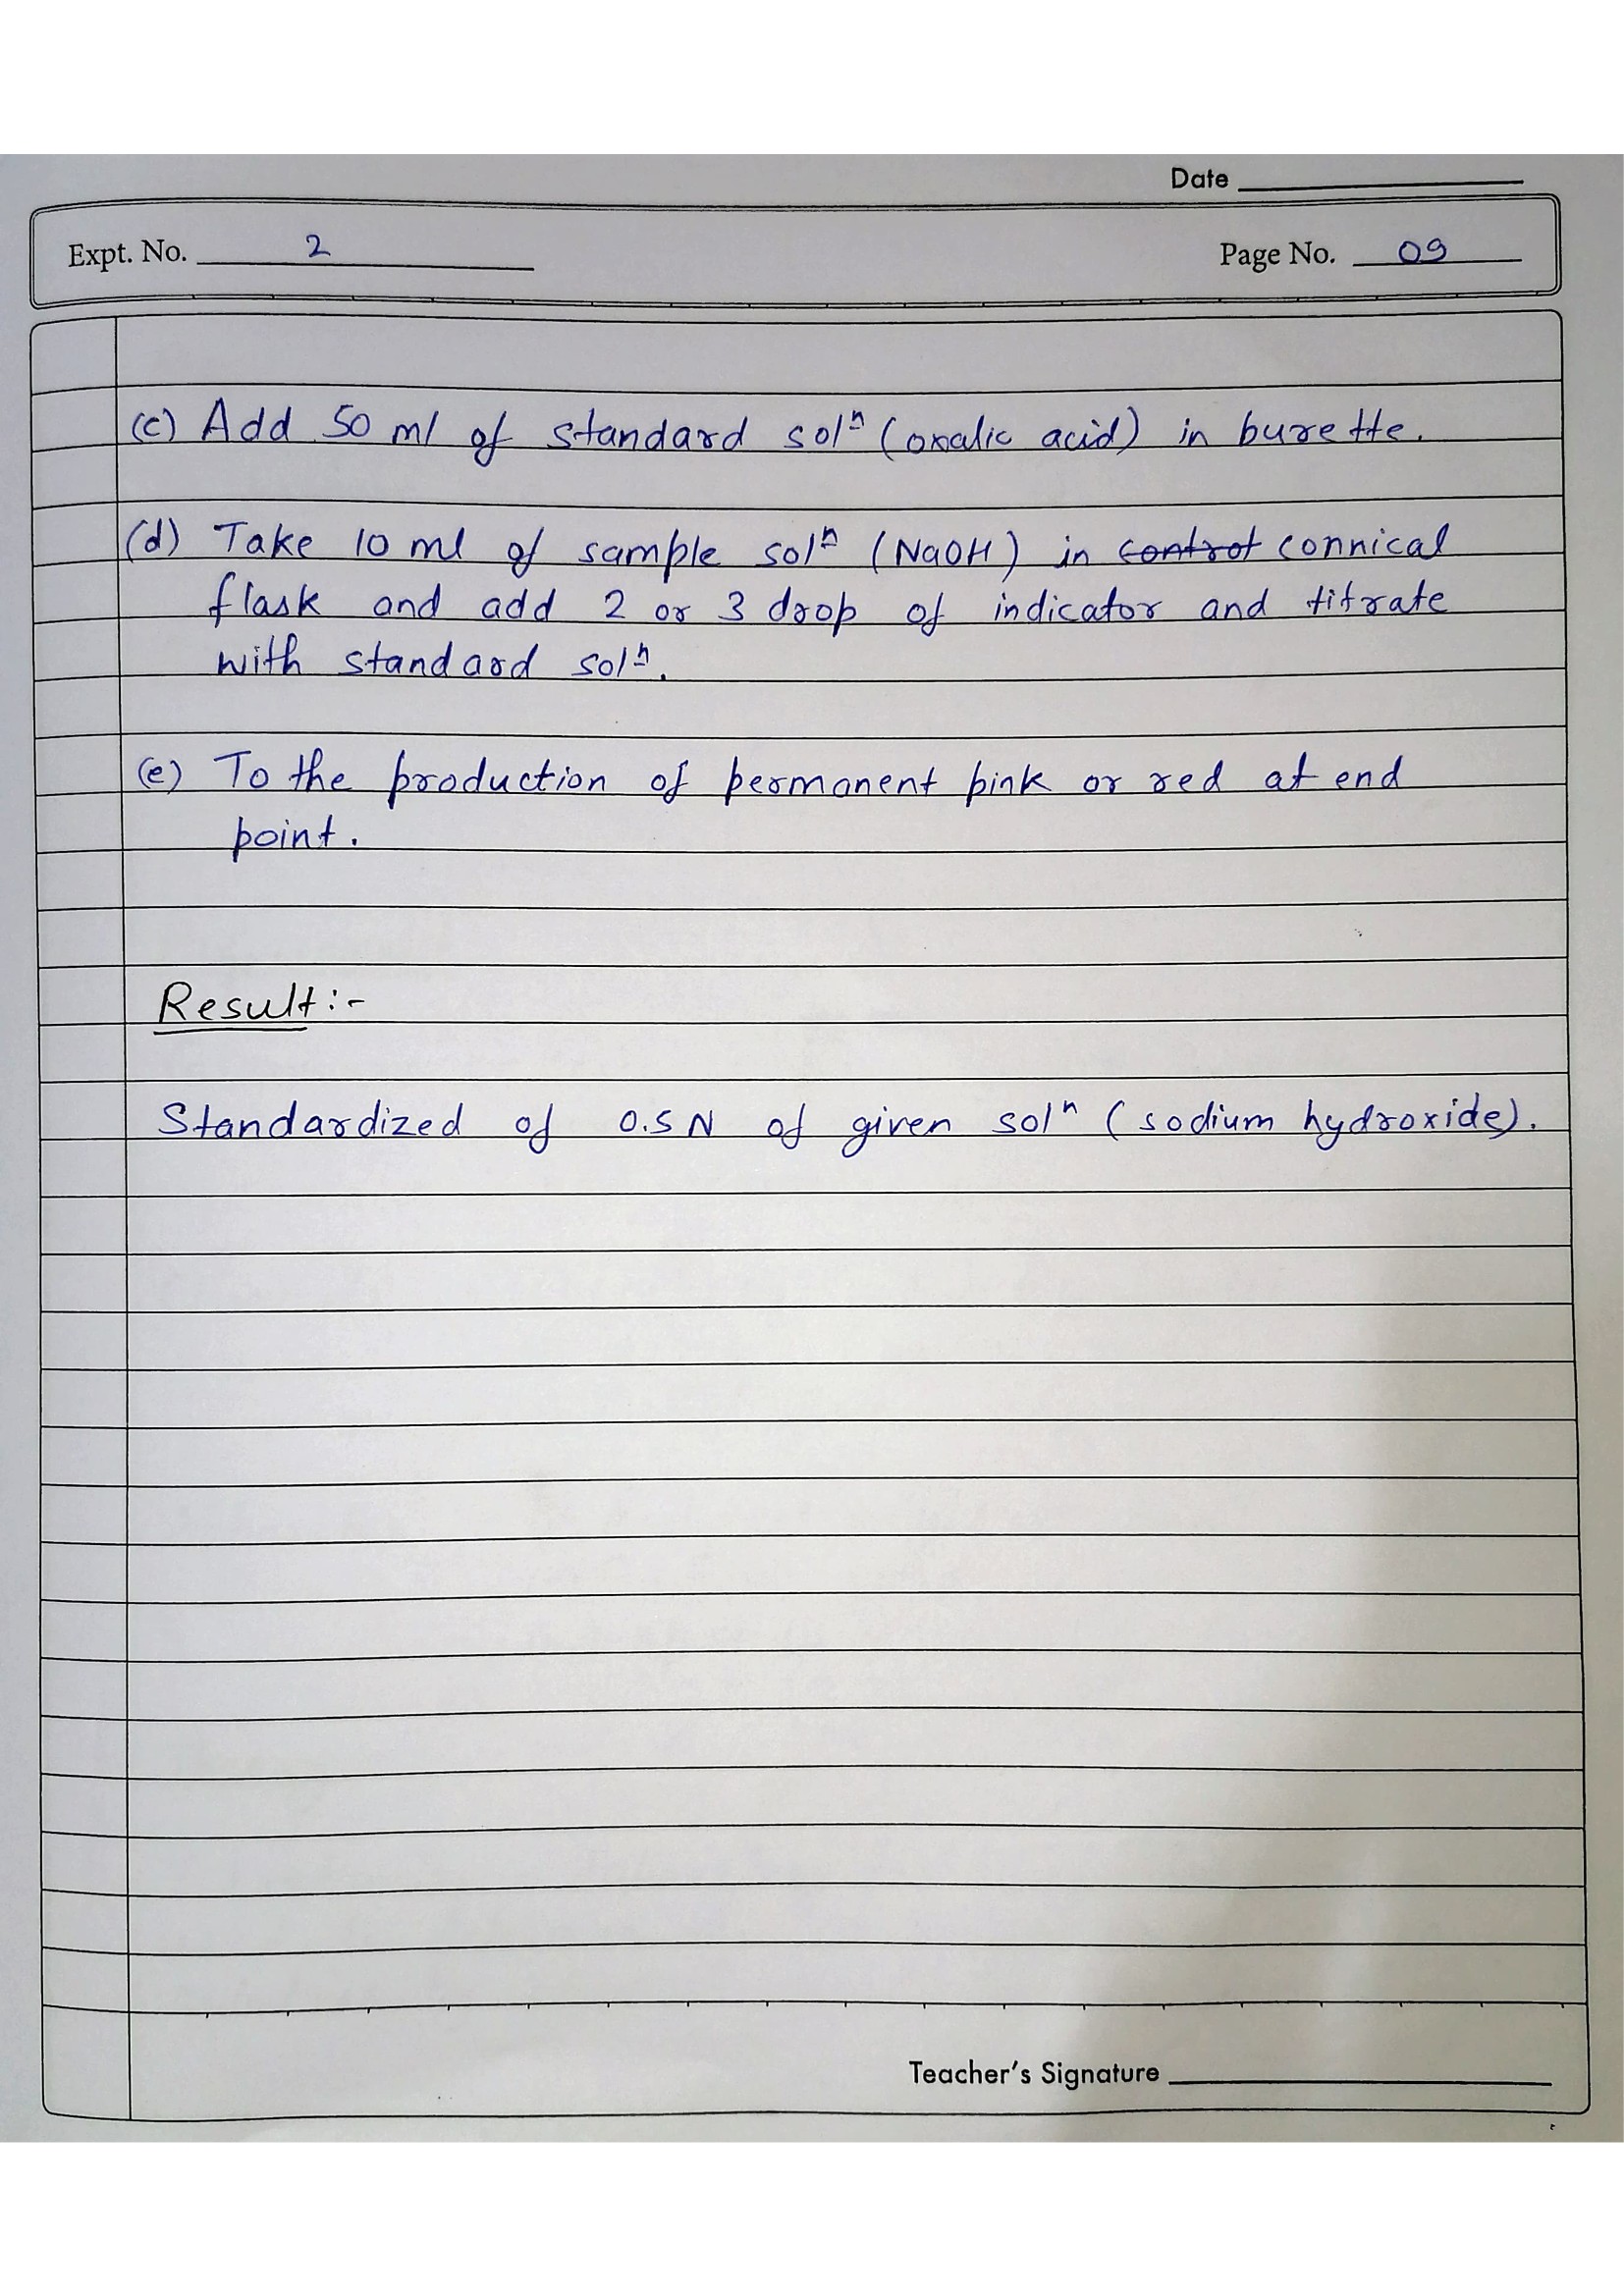 Date
Expt. No. 2
Page No. 09
(c) Add 50 ml of standard solⁿ (oxalic acid) in burette.
(d) Take 10 ml of sample solⁿ (NaOH) in control connical
flask and add 2 or 3 drop of indicator and titrate
with standard solⁿ.
(e) To the production of permanent pink or red at end
point.
Result :-
Standardized of 0.5 N of given solⁿ (sodium hydroxide).
Teacher's Signature